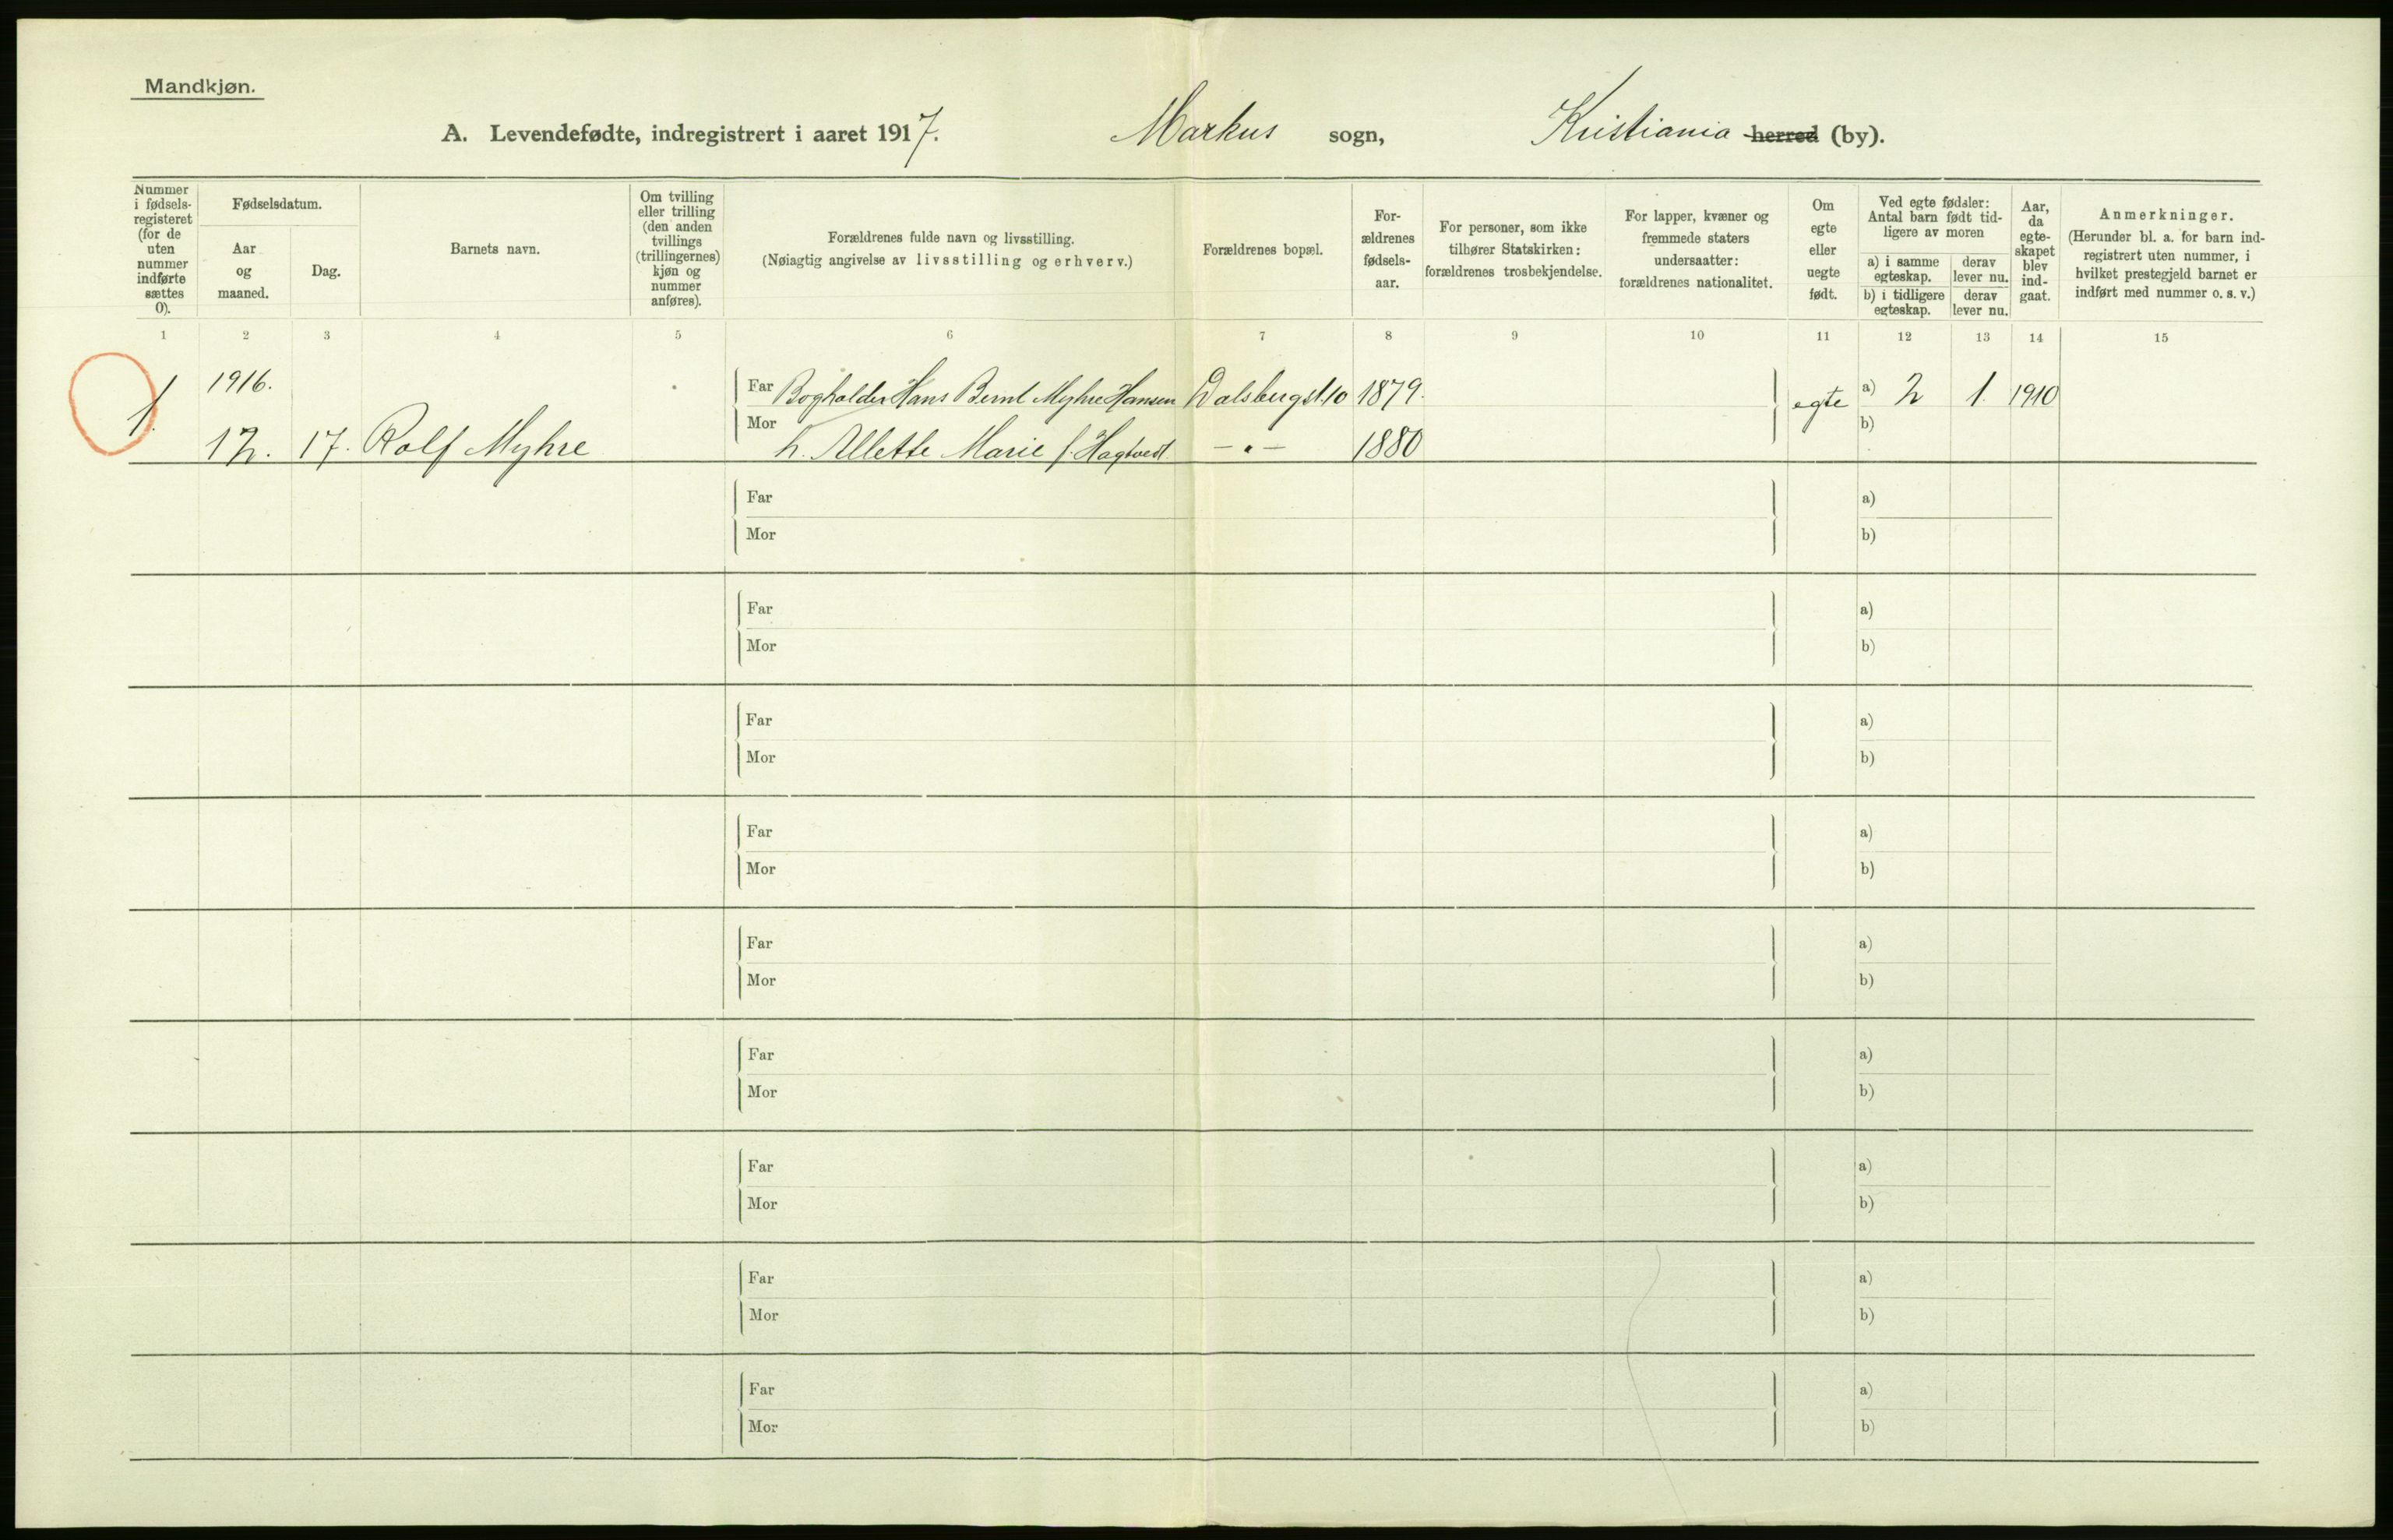 Mandkjøn.
A. Levendefødte, indregistrert i aaret 1917. Markus sogn, Kristiania herred (by).
Nummer
i fødsels-
registeret
(for de
uten
nummer
indførte
sættes
0).
Fødselsdatum.
Aar
og
maaned.
Dag.
Barnets navn.
Om tvilling
eller trilling
(den anden
tvillings
(trillingernes)
kjøn og
nummer
anføres).
Forældrenes fulde navn og livsstilling.
(Nøiagtig angivelse av livsstilling og erhverv.)
Forældrenes bopæl.
For-
ældrenes
fødsels-
aar.
For personer, som ikke
tilhører Statskirken:
forældrenes trosbekjendelse.
For lapper, kvæner og
fremmede staters
undersaatter:
forældrenes nationalitet.
Om
egte
eller
uegte
født.
Ved egte fødsler:
Antal barn født tid-
ligere av moren
a) i samme
egteskap.
derav
lever nu.
b) i tidligere
egteskap.
derav
lever nu.
Aar,
da
egte-
skapet
blev
ind-
gaat.
Anmerkninger.
(Herunder bl. a. for barn ind-
registrert uten nummer, i
hvilket prestegjeld barnet er
indført med nummer o. s. v.)
1 2 3 4 5 6 7 8 9 10 11 12 13 14 15
1916. Far Bogholder Hans Bernt Myhre Hansen Dalsbergst. 10 1879. a) 2 1 1910
1. egte
Mor b)
12. 17. Rolf Myhre h. Allette Marie f. Hagtvedt. -"- 1880
Far a)
Mor b)
Far a)
Mor b)
Far a)
Mor b)
Far a)
Mor b)
Far a)
Mor b)
Far a)
Mor b)
Far a)
Mor b)
Far a)
Mor b)
Far a)
Mor b)